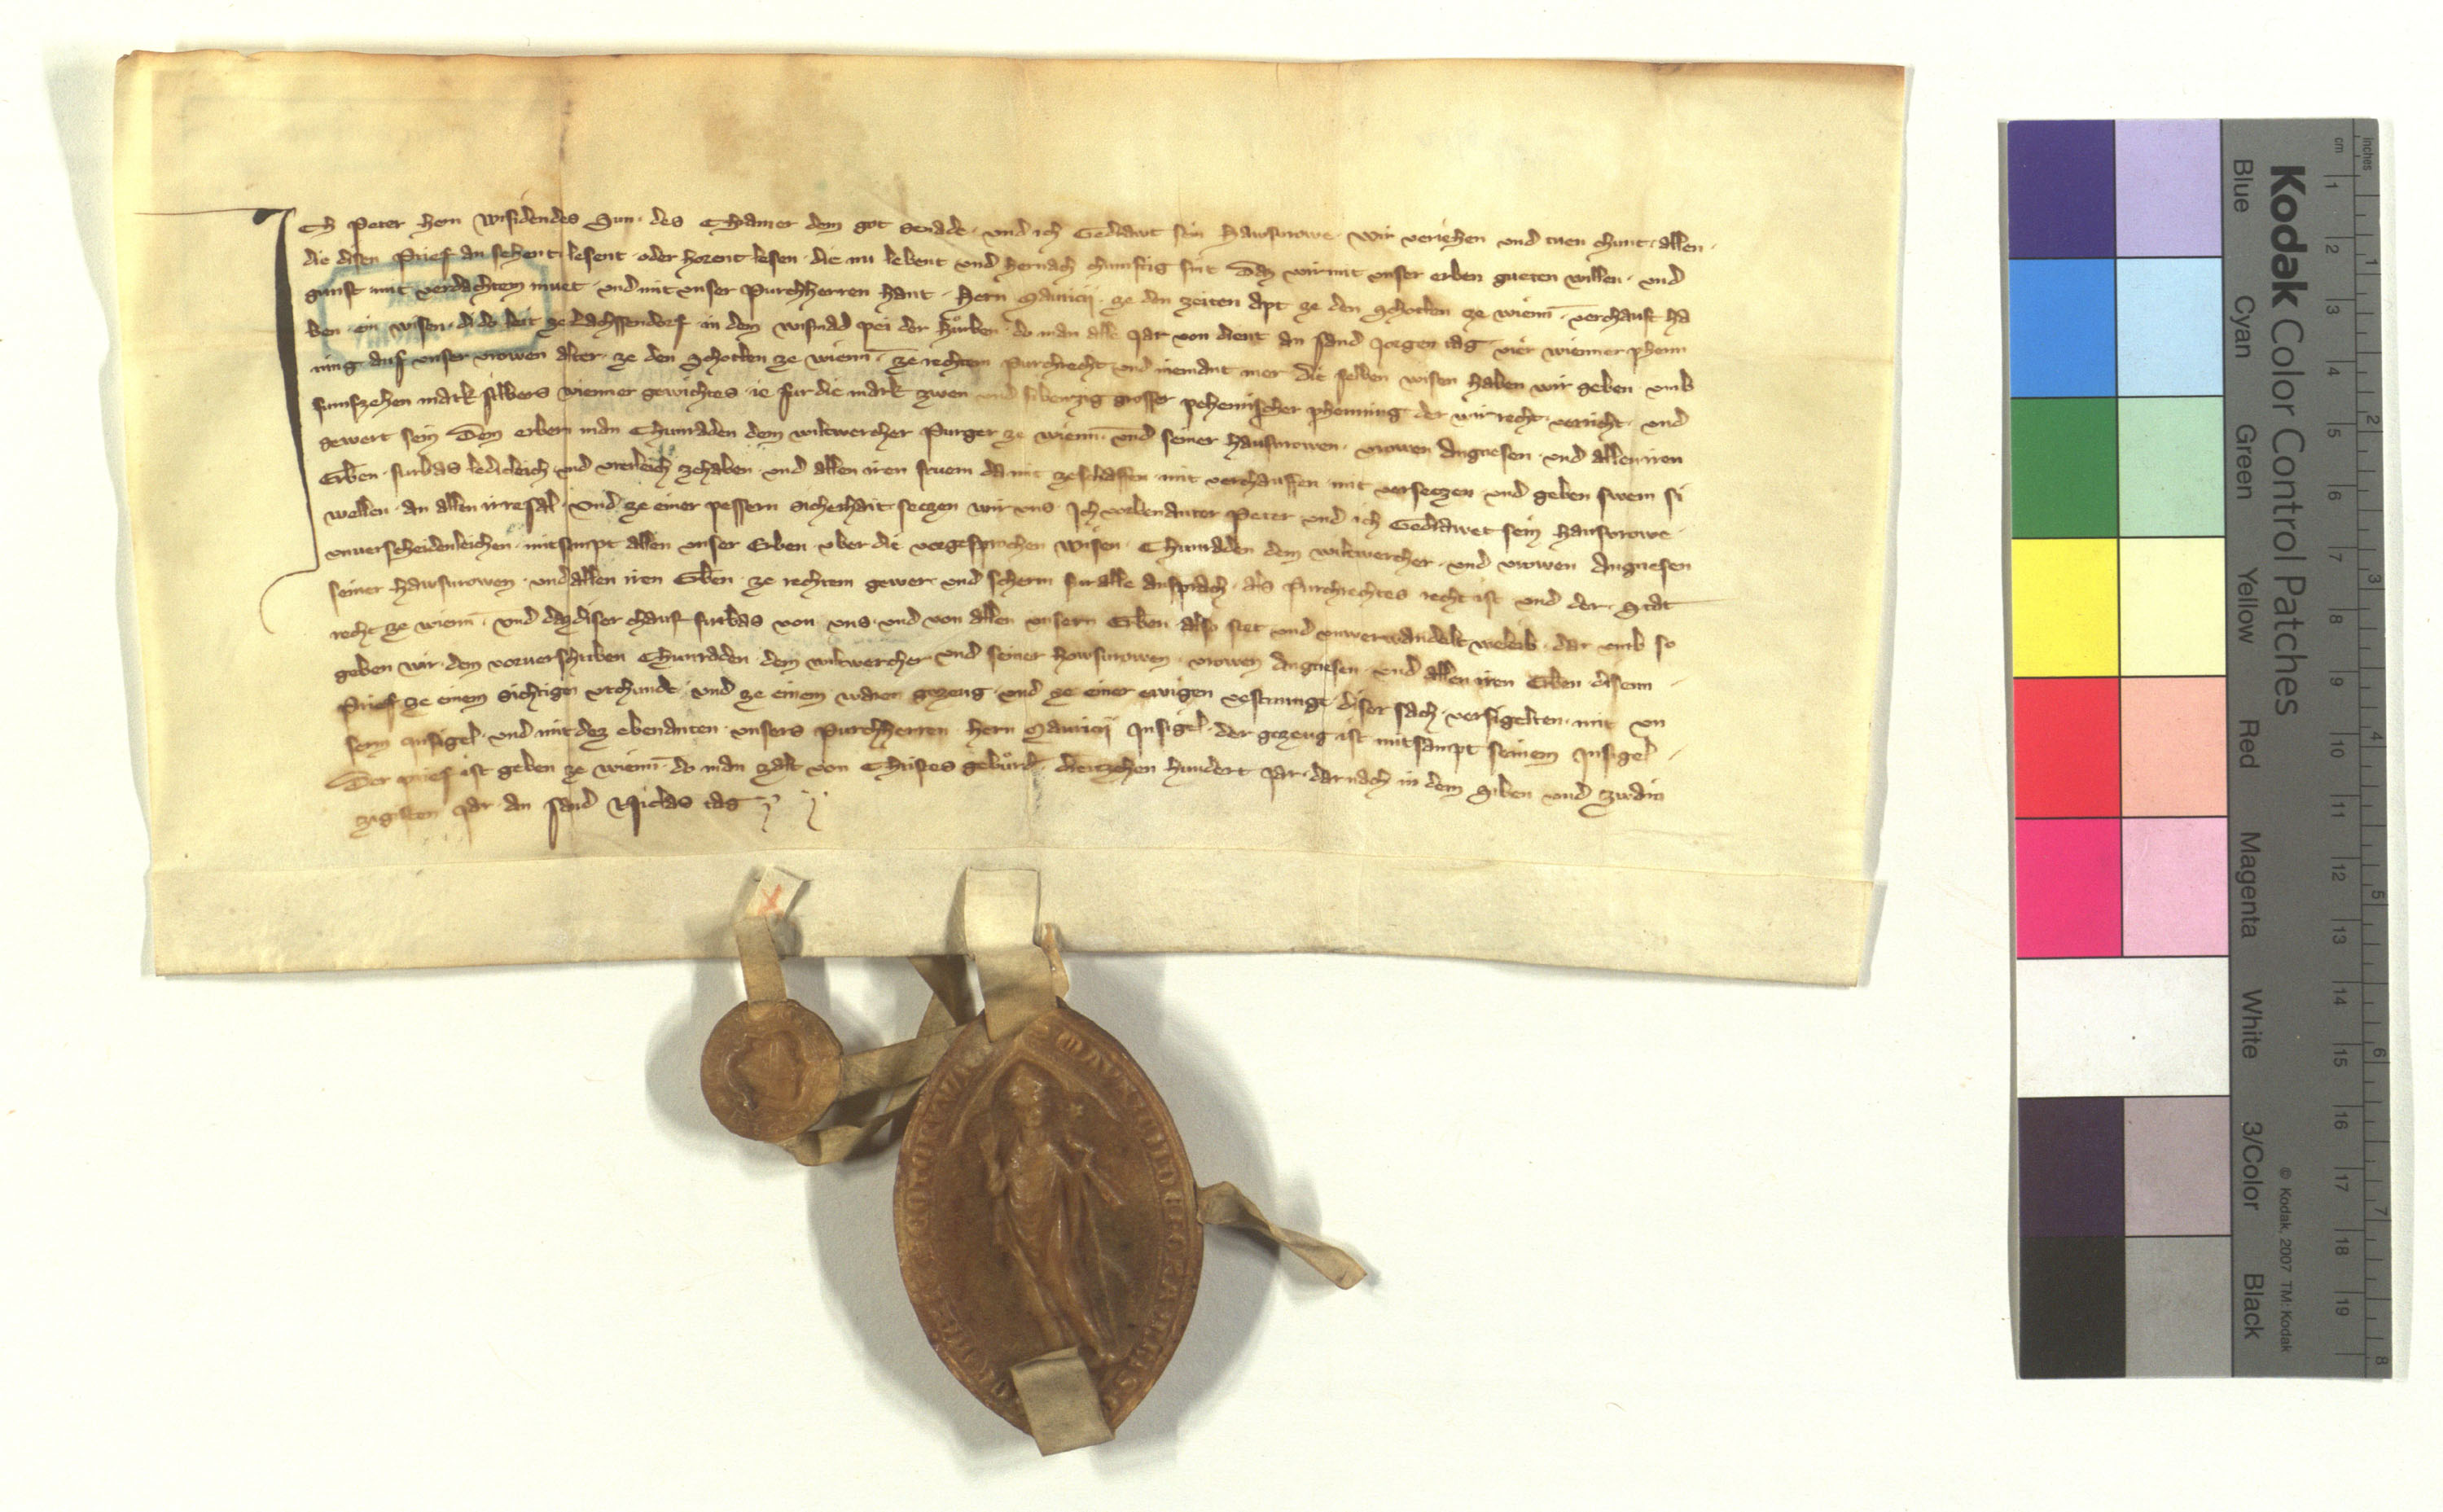 Ich Peter hern Wisidendes Sun · des Chamer dem got genade · und ich Gedrawt sein Hawsvrowe · wir veriehen und tuen chunt · allen ·
die disen Prief an sehent · lesent · oder horent lesen · die nu lebent und hernach chunftig sint Daz wir mit unser erben gueten willen · und
gunst · mit verdachtem muet · und mit unser Purchherren hant · Hern Mauricii · ze den zeiten apt ze den Schotten ze wienn · verchauft ha
ben · ein wisen · di do leit ze Lachssendorf in dem wismad pei der Hůrben · do man alle Jar von dient an sand Jorgen tag · vier wienner phenn
ning auf unser vrowen alter · ze den Schotten ze wienn · ze rechtem Purchrecht und niemant mer die selben wisen haben wir geben umb
fumfzehen mark silbers wienner gewichtes ie fur die mark zwen und sibenzig grosser pehemischer phenning der wir recht · verricht · und
gewert sein Dem erbern man Chunraden dem wiltwercher Purger ze wienn · und seiner hausvrowen · vrowen Angnesen · und allen iren
Erben · furbas ledicleich und vreileich ze haben · und allen iren fruem da mit ze schaffen · mit verchauffen · mit verseczen und geben swem si
wellen · an allen irresal · Und ze einer pessern sicherhait seczen wir uns · Ich vorbenanter Peter und ich Gedrawet sein hausvrowe ·
unverscheidenleichen · mitsampt allen unser Erben · uber die vorgesprochen wisen · Chunraden dem wiltwercher · und vrowen Angnesen
seiner hawsvrowen · und allen iren Erben · ze rechtem gewer · und scherm fur alle ansprach · als Purchrechtes recht ist und der · Stat
recht ze wienn · und daz diser chauf furbas von uns · und von allen unsern Erben · also stet und unverwandelt weleib · dar umb so
geben wir · dem vorverschriben Chunraden · dem wiltwercher und seiner hawsvrowen · vrowen Angnesen · und allen iren Erben · disenn
Prief ze einem sichtigen urchunde · und ze einem waren gezeug · und ze einer ewigen vestnunge · diser sach · versigelten · mit un
serm insigel · und mit dez ebenanten · unsers Purchherren · hern Mauricii Insigel · der gezeug ist mitsampt seinem Insigel ·
Der prief ist geben ze wienn · do man zalt von Christes gebůrd · dreuzehen hundert Jar · dar nach in dem Siben und zwain
zigisten Jar · an sand Niclas tag
Kodak Color Control Patches
Blue Cyan Green Yellow Red Magenta White 3/Color Black
© Kodak, 2007 TM: Kodak
inches 1 2 3 4 5 6 7 8
cm 1 2 3 4 5 6 7 8 9 10 11 12 13 14 15 16 17 18 19